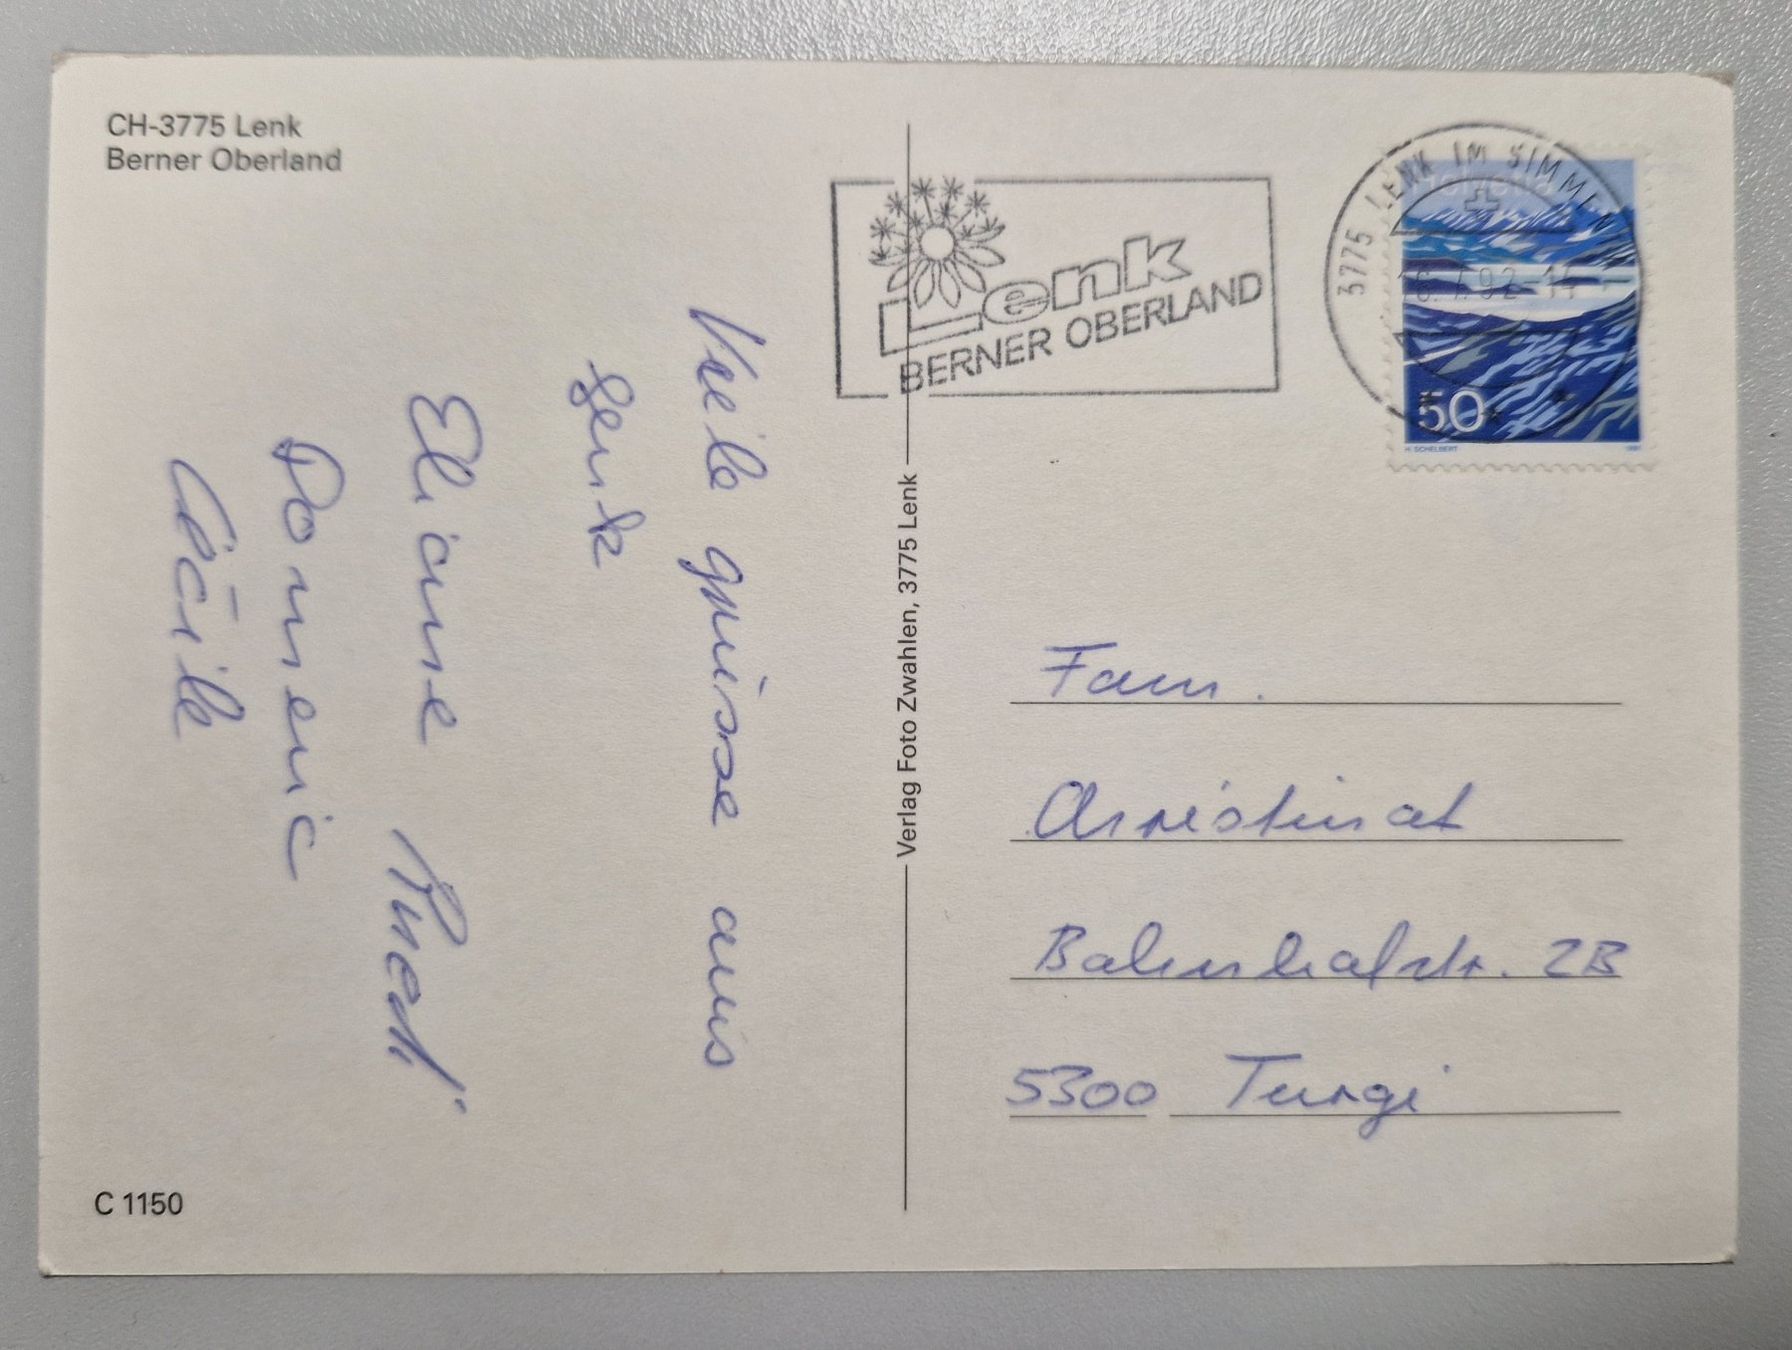 CH-3775 Lenk
Berner Oberland
Viele grüsse aus
Lenk
Eliane Ruedi
Domenic
Cécile
C 1150
Verlag Foto Zwahlen, 3775 Lenk
Lenk
BERNER OBERLAND
3775 LENK IM SIMMEN
92
Helvetia
50
H. SCHELBERT
Fam.
Bahnhofstr. 2B
5300 Turgi